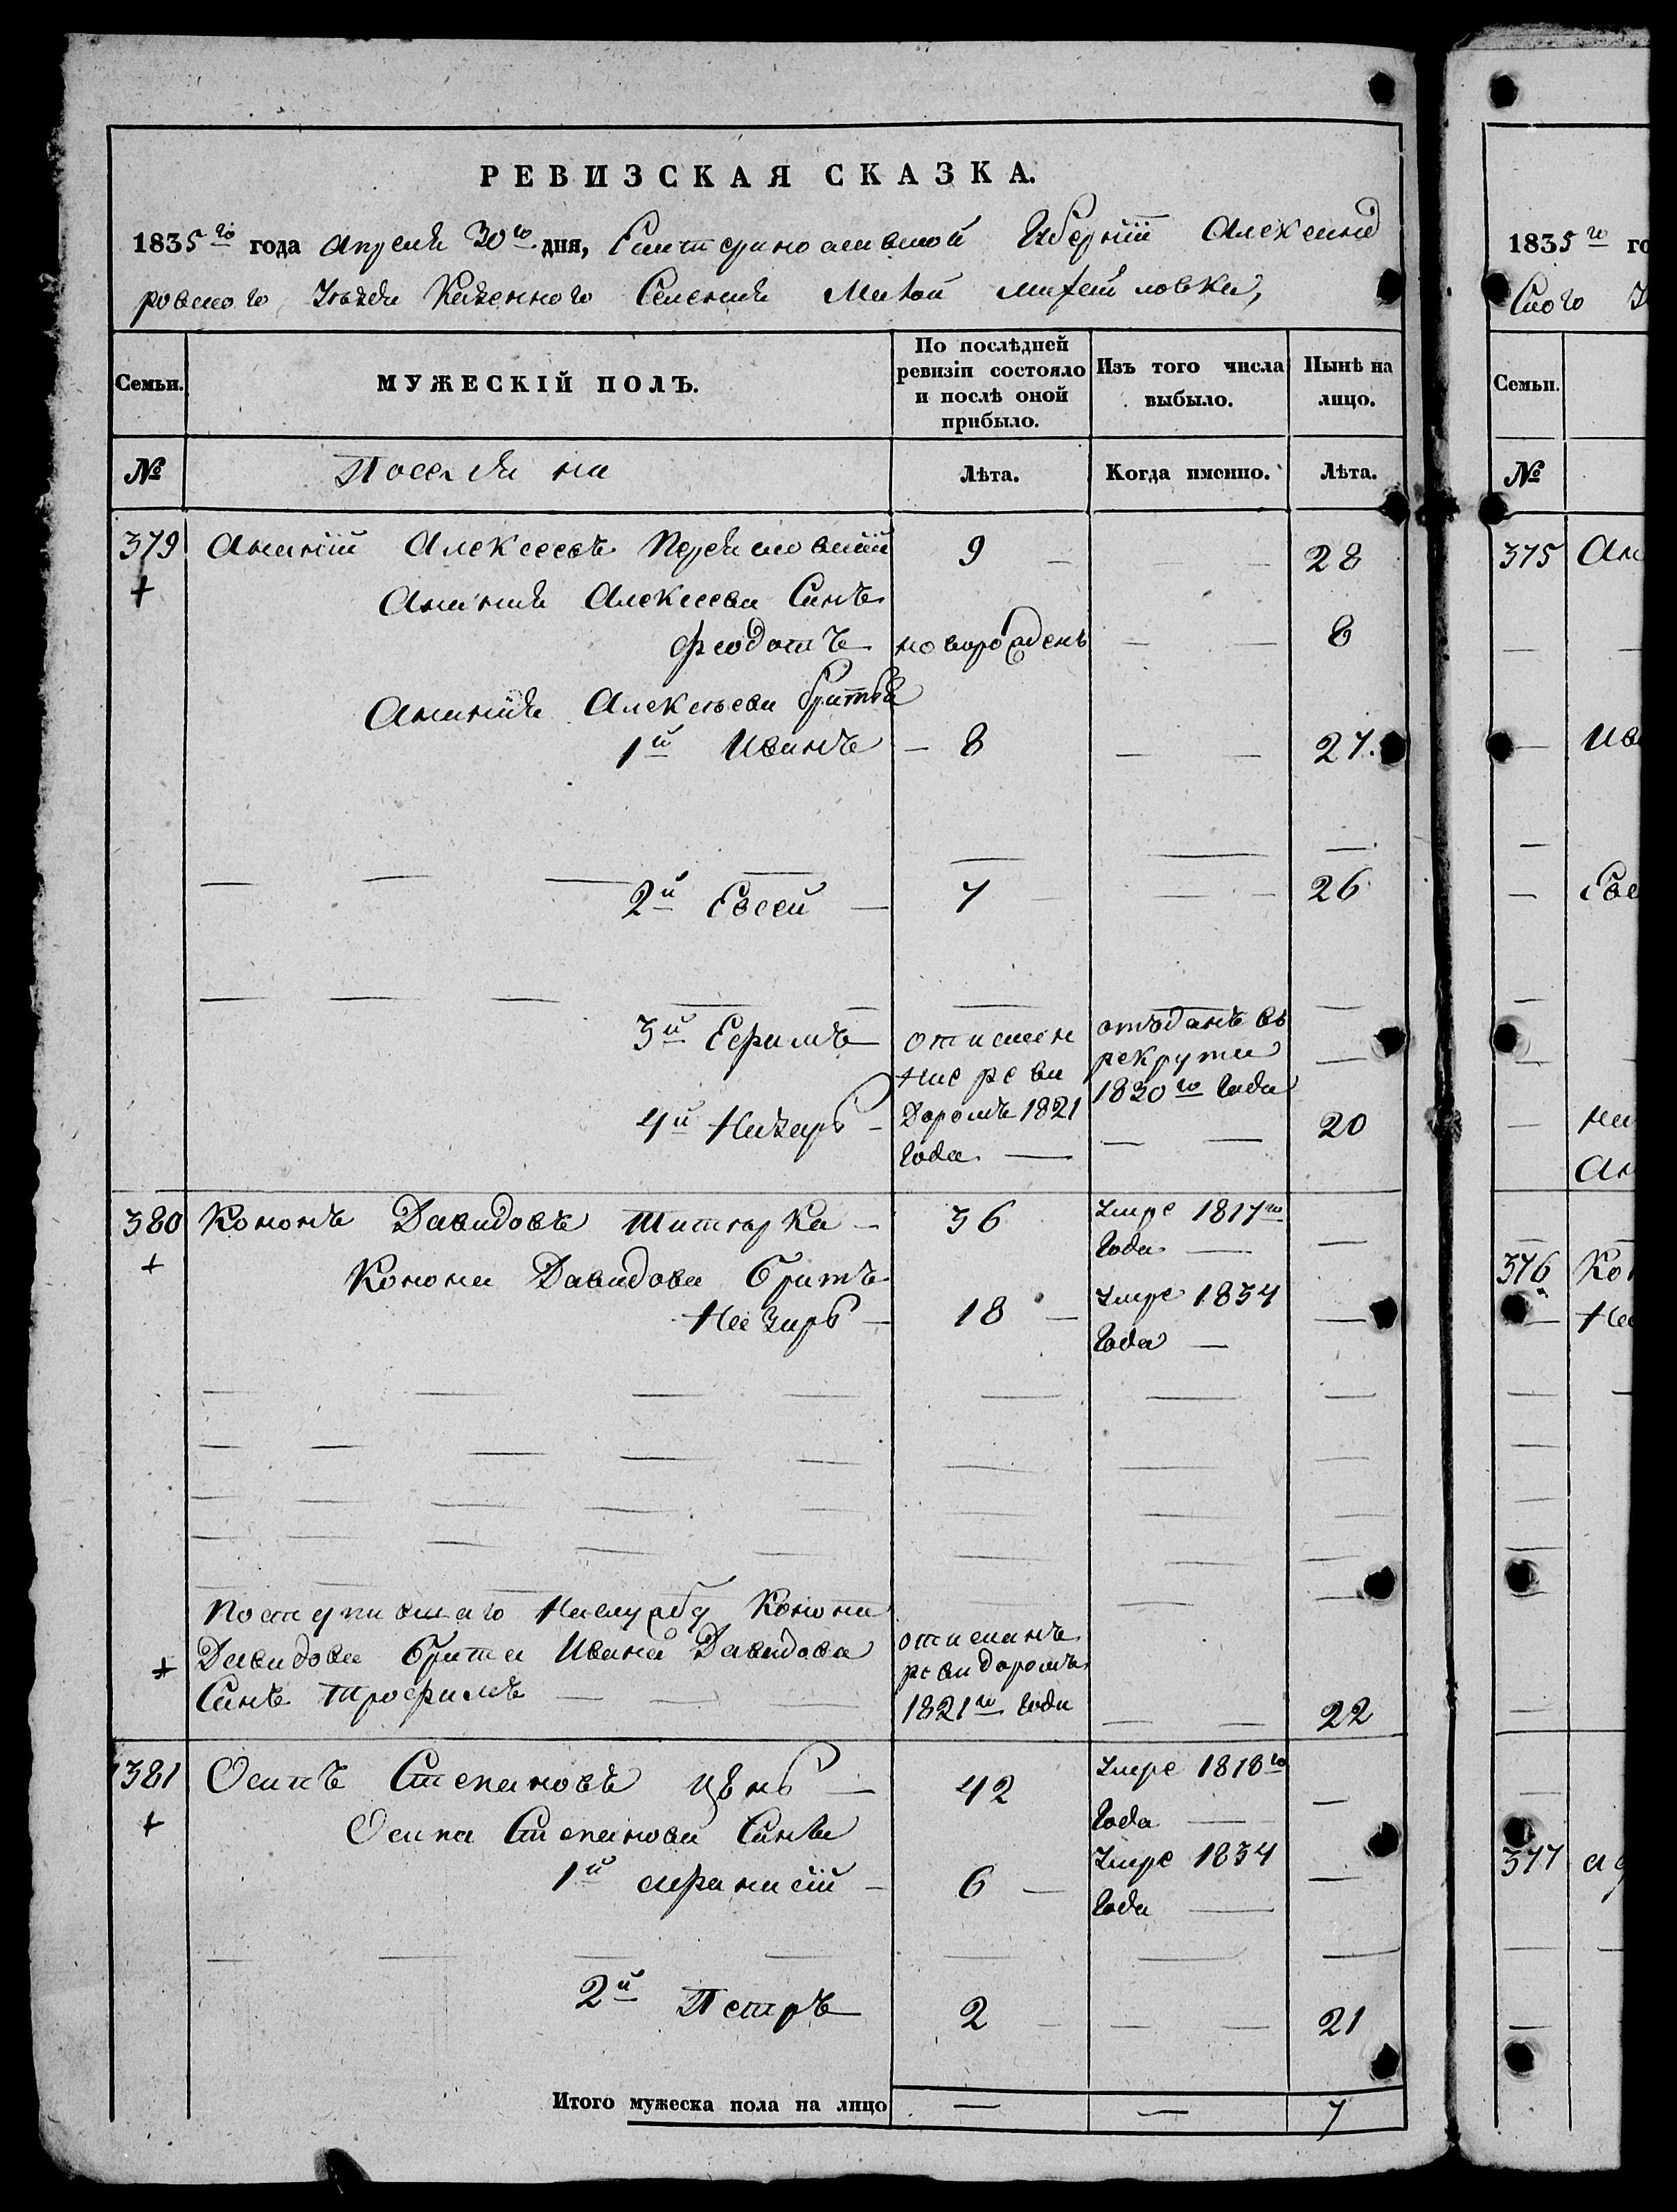 РЕВИЗСКАЯ СКАЗКА.
1835го года Апреля 30го дня, Екатеринославской Губернїи Александ
ровского Уѣзда Казенного Селения Малой Михайловки,
Семьи. МУЖЕСКІЙ ПОЛЪ. По послѣдней ревизіи состояло и послѣ оной прибыло. Изъ того числа выбыло. Нынѣ на лицо.
№ Поселяна Лѣта. Когда именно. Лѣта.
379 Ананїй Алексеевъ 9 — — — 28
+ Анания Алексеева Синъ
Феодотъ новорожденъ — — 8
Ананїя Алексѣева братья
1й Иванъ — 8 — — 27.
2й Евсей — 7 — — — 26
3й Ефимъ — отъданъ въ
рекруты —
1830го Года
4й Назаръ — 1821 — — 20
Года —
380 Кононъ Давидовъ Титаръка — 36 Умре 1817го
Года — —
+ Конона Давидова братъ
Назаръ — 18 — Умре 1834 —
Года —
Поступившаго Наслужбу Конона
+ Давидова брата Ивана Давидова
Синъ Трофимъ — — —
отисканъ
ревидоромъ
1821го Года — — 22
381 Осипъ Степановъ — 42 Умре 1818го
Года — —
+ Осипа Степанова Сины
1й Афанасїй — 6 — Умре 1834 —
Года —
2й Петръ 2 — — — 21
Итого мужеска пола на лицо — — 7
1835го го
ского У
Семьи.
№
375 Ан
Ив
Евс
На
Ан
376 Ко
На
377